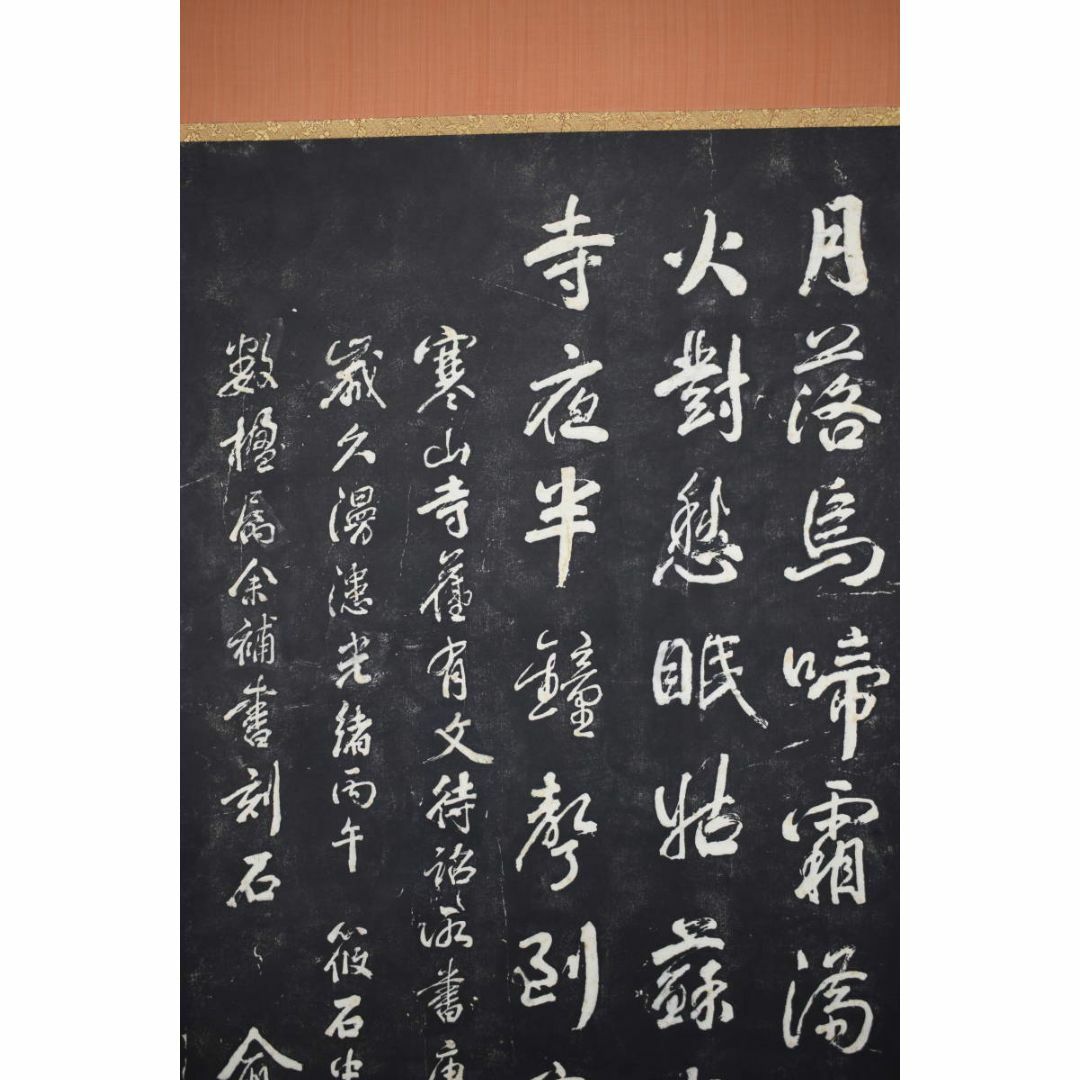 月落烏啼霜滿
火對愁眠姑蘇
寺夜半鐘聲到
寒山寺舊有文待詔所書唐
歲久漫漶光緒丙午 筱石中
數楹屬余補書刻石 俞